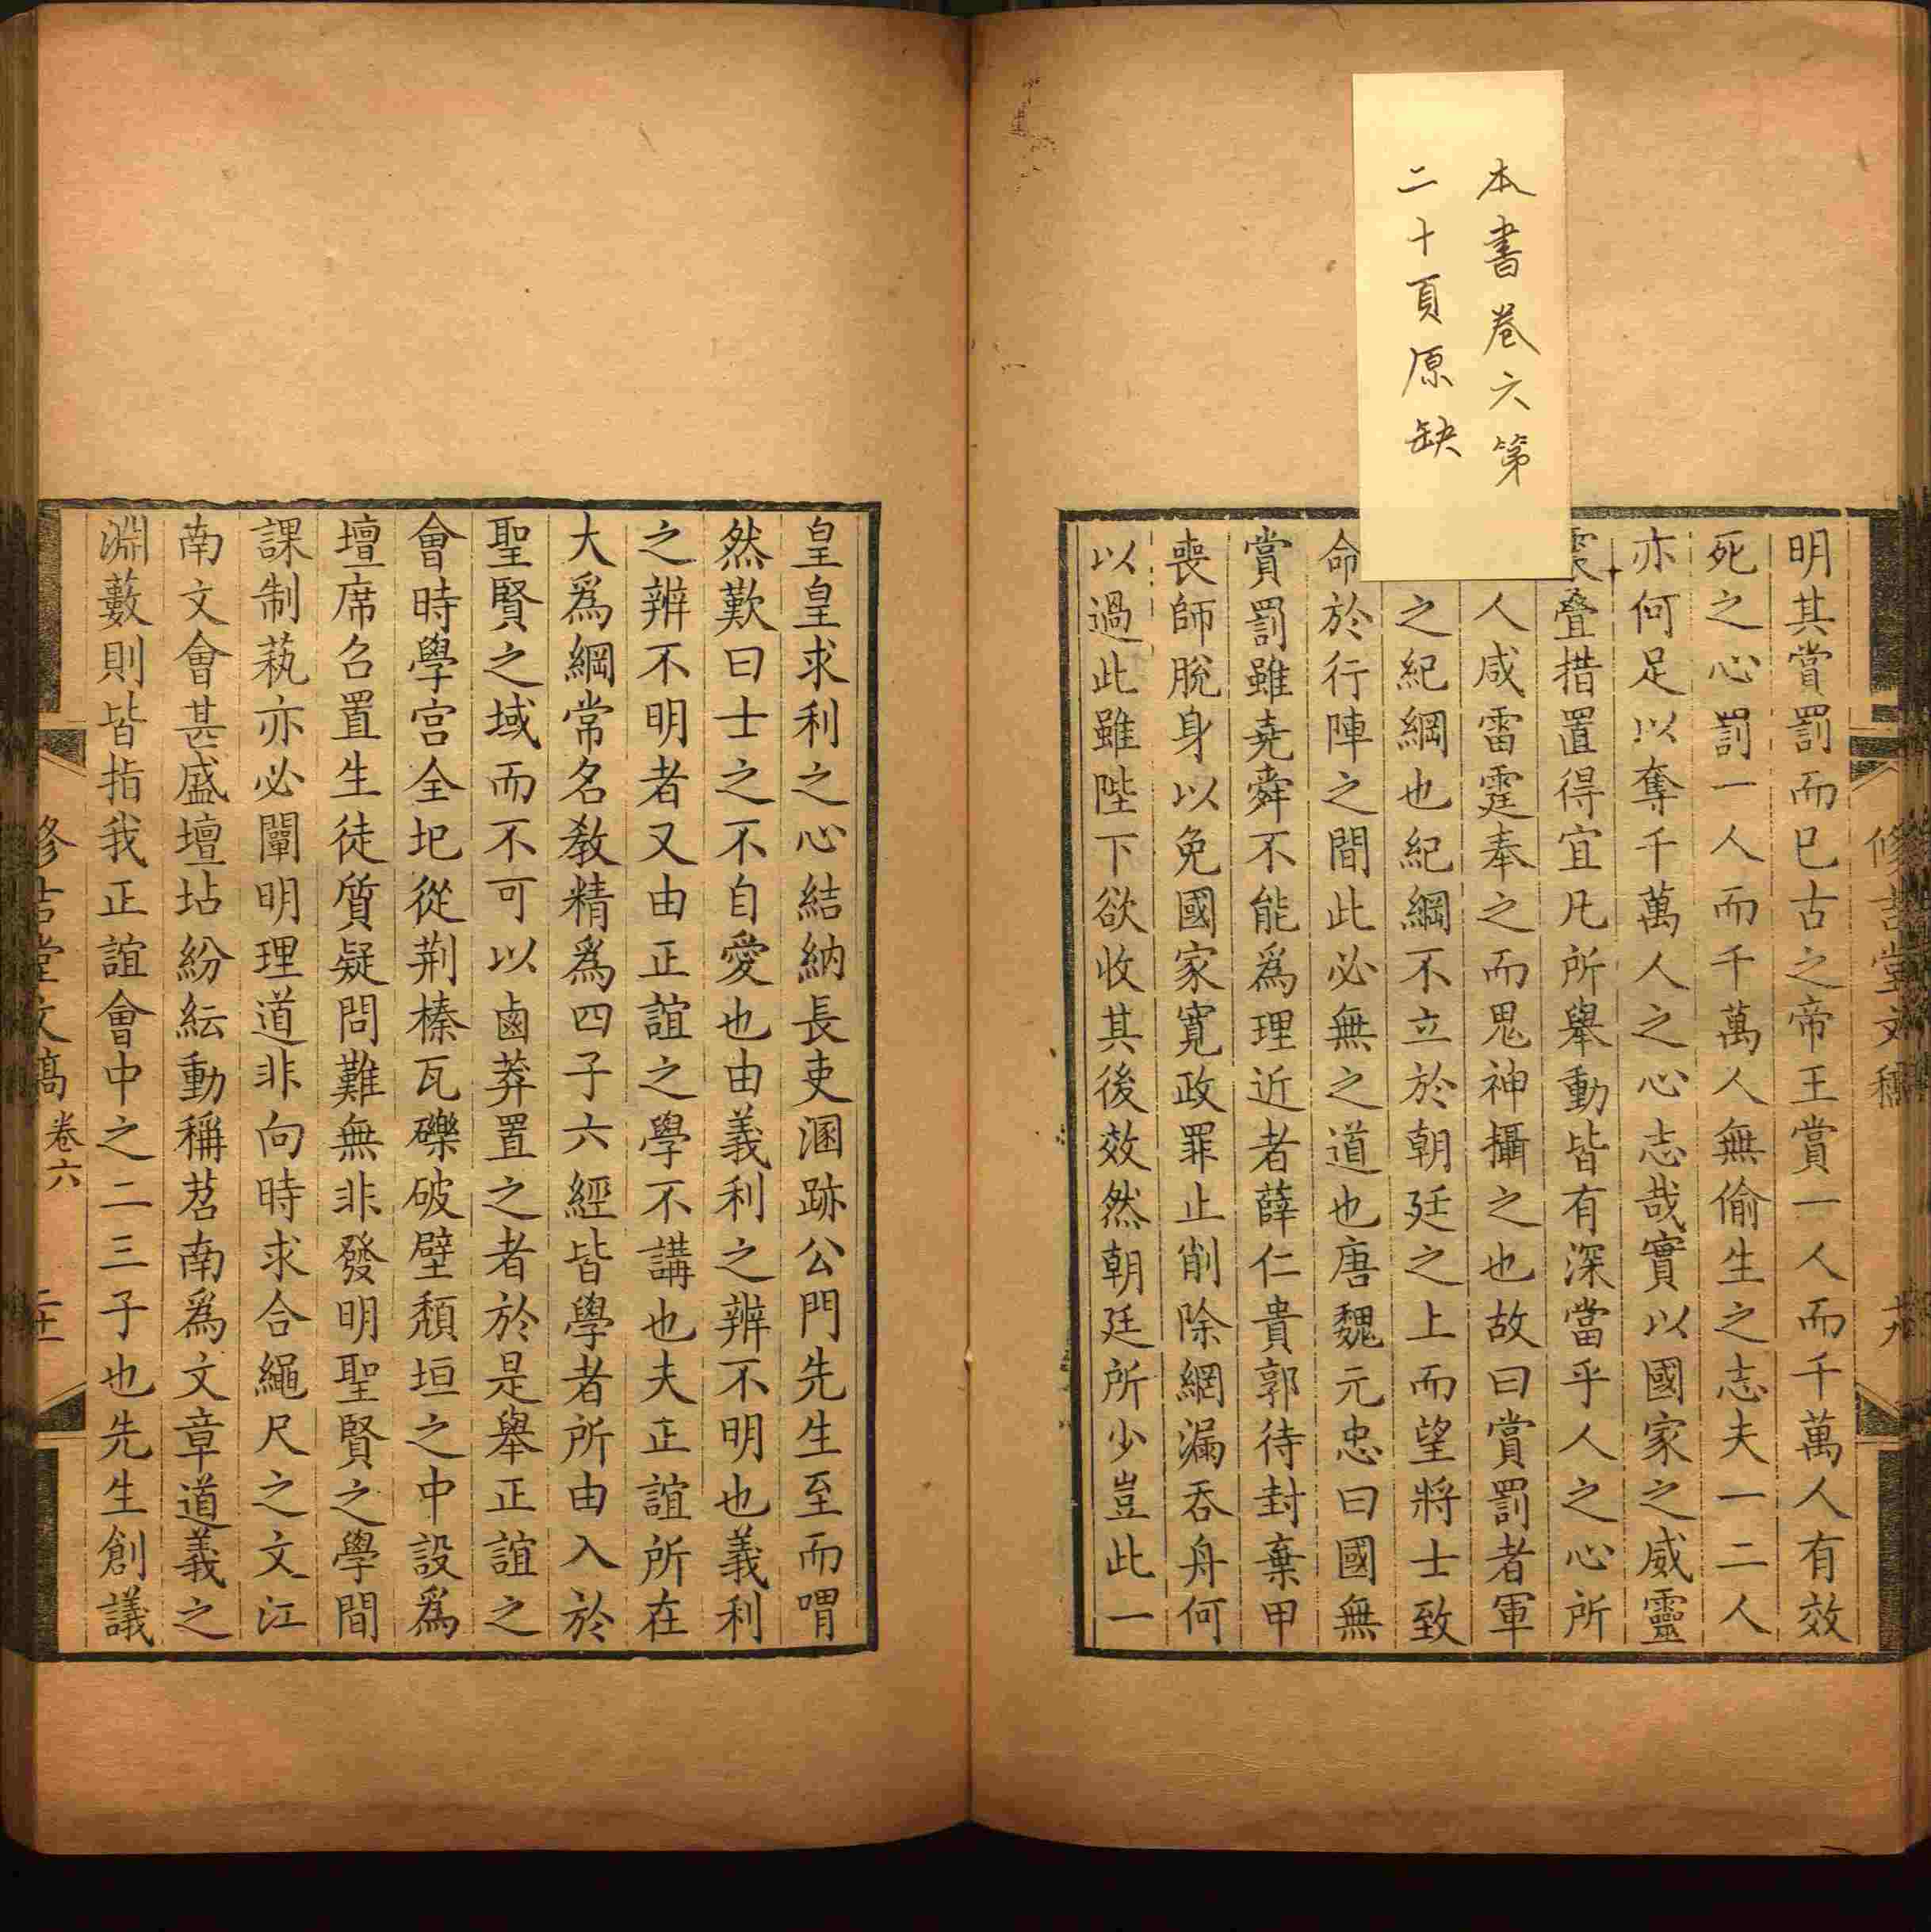 本書卷六第
二十頁原缺
明其賞罰而巳古之帝王賞一人而千萬人有效
死之心罰一人而千萬人無偷生之志夫一二人
亦何足以奪千萬人之心志哉實以國家之威靈
震疊措置得宜凡所舉動皆有深當乎人之心所
人咸雷霆奉之而鬼神攝之也故曰賞罰者軍
之紀綱也紀綱不立於朝廷之上而望將士致
命於行陣之間此必無之道也唐魏元忠曰國無
賞罰雖堯舜不能爲理近者薛仁貴郭待封棄甲
喪師脫身以免國家寬政罪止削除網漏吞舟何
以過此雖陛下欲收其後效然朝廷所少豈此一
皇皇求利之心結納長吏溷跡公門先生至而喟
然歎曰士之不自愛也由義利之辨不明也義利
之辨不明者又由正誼之學不講也夫正誼所在
大爲綱常名敎精爲四子六經皆學者所由入於
聖賢之域而不可以鹵莽置之者於是舉正誼之
會時學宮全圮從荆榛瓦礫破壁頹垣之中設爲
壇席召置生徒質疑問難無非發明聖賢之學間
課制蓺亦必闡明理道非向時求合繩尺之文江
南文會甚盛壇坫紛紜動稱苕南爲文章道義之
淵藪則皆指我正誼會中之二三子也先生創議
修吉堂文稿 卷六 二十一